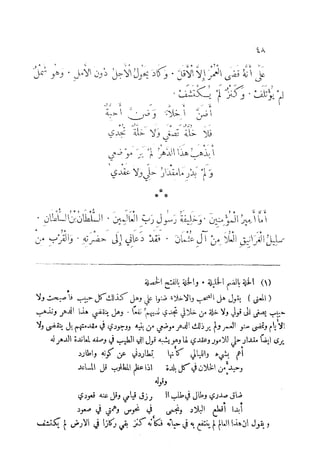 ٤٨
على أنه قضى العمر إلا الأقل . وكاد يحول الأجل دون الأمل . وهو شمل
لم يؤتلف . وكنز لم يكتشف .
أضن أخلاء وضن أحبة
فلا خلة تصفي ولا خلة تجدي
أيذهب هذا الدهر لم ير موضعي
ولم يدر ما مقدار حلي ولا عقدي
* * *
أما أمير المؤمنين . وخليفة رسول رب العالمين . السلطان بن السلطان .
سليل الغرانيق العلا من آل عثمان . فقد دعاني إلى حضرته . والقرب من
(١) الخلة بالضم الخليلة . والخلة بالفتح الخصلة
( المعنى ) يقول هل الصحب والاخلاء ضنوا علي وهل كذلك كل حبيب فأصبحت ولا
حبيب يصفى الى قولي ولا خلة من خلالي تجدي نفعا . وهل ينقضي هذا الدهر وتذهب
الأيام وتمضي سنو العمر ولم ير ذلك الدهر موضعي من بنيه ووجودي في مقدمتهم بل ينقضي ولا
يرى ايضا مقدار حلي للأمور وعقدي لها وهو يشبه قول ابي الطيب في وصفه لمعاندة الدهر له
أهم بشيء والليالي كأنها تطاردني عن كونه واطارد
وحيد من الخلان في كل بلدة اذا عظم المطلوب قل المساعد
وقوله
ضاق صدري وطال في طلب الـ رزق قيامي وقل عنه قعودي
أبدا أقطع البلاد ونجمي في نحوس وهمتي في صعود
ويقول ان هذا العالم لم ينتفع به في حياته فكأنه كنز بقي ركازا في الارض لم يكتشف